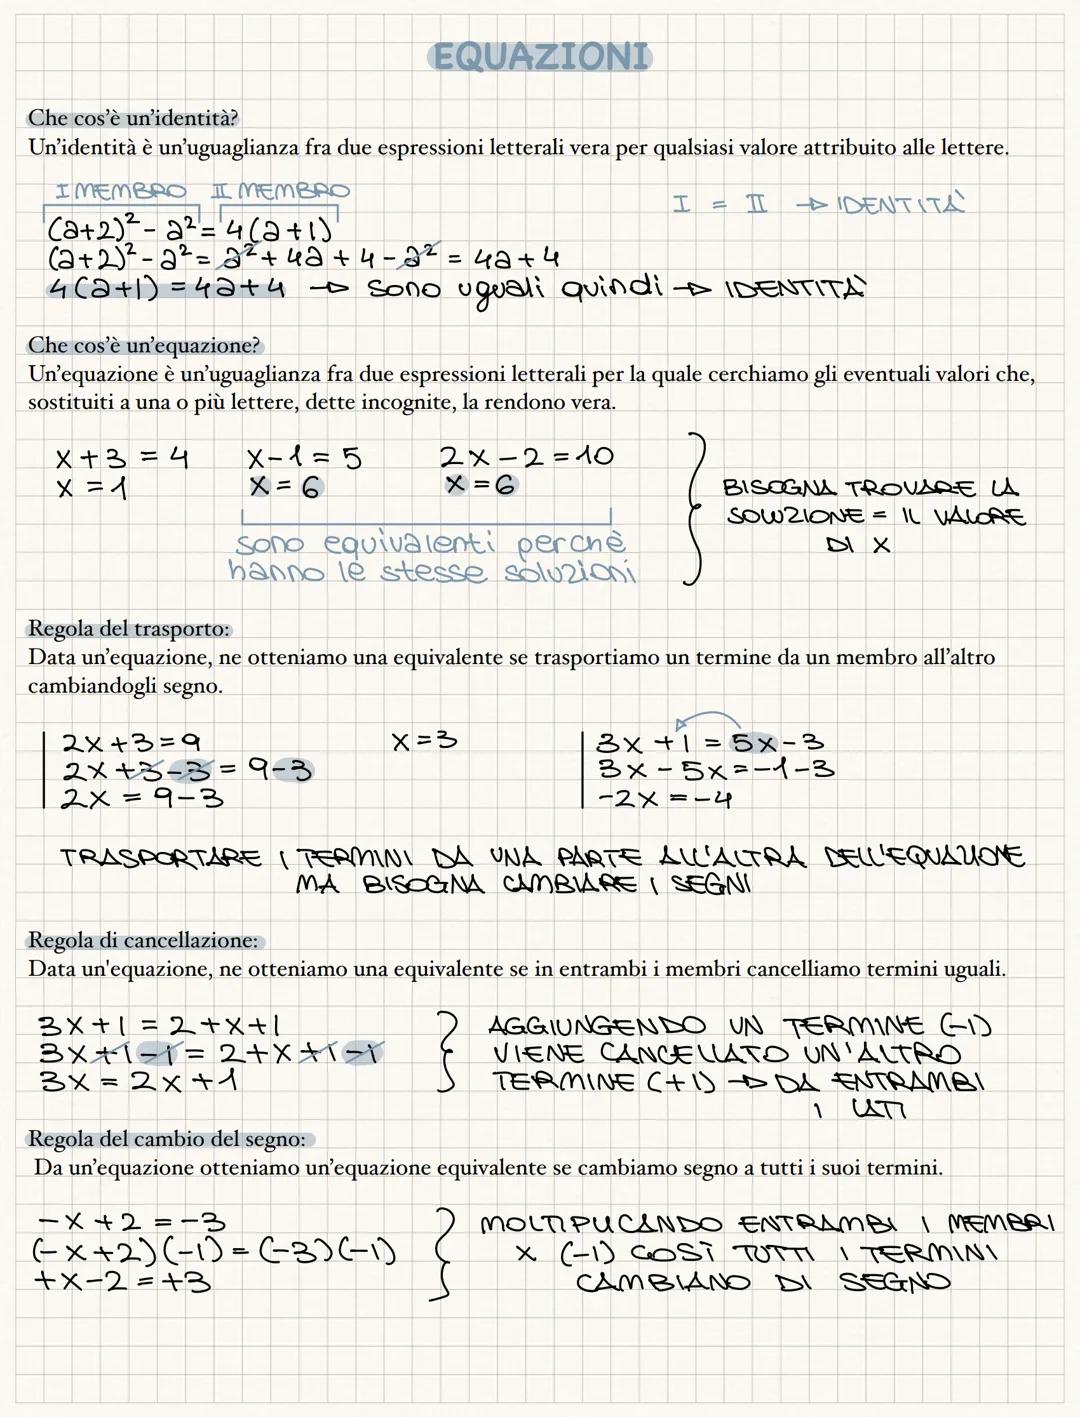 EQUAZIONI
Che cos'è un'identità?
Un'identità è un'uguaglianza fra due espressioni letterali vera per qualsiasi valore attribuito alle lettere.
I MEMBRO II MEMBRO
I = II → IDENTITÀ
(a+2)² - a² = 4(a+1)
(a+2)² - a² = a² + 4a + 4 - a² = 4a + 4
4(a+1) = 4a+4 → sono uguali quindi → IDENTITÀ
Che cos'è un'equazione?
Un'equazione è un'uguaglianza fra due espressioni letterali per la quale cerchiamo gli eventuali valori che,
sostituiti a una o più lettere, dette incognite, la rendono vera.
x+3 = 4 x-1 = 5 2x-2 = 10
x = 1 x = 6 x = 6
BISOGNA TROVARE LA
SOLUZIONE = IL VALORE
DI X
sono equivalenti perchè
hanno le stesse soluzioni
Regola del trasporto:
Data un'equazione, ne otteniamo una equivalente se trasportiamo un termine da un membro all'altro
cambiandogli segno.
2x+3=9 x=3 3x+1 = 5x-3
2x+3-3 = 9-3 3x-5x=-1-3
2x = 9-3 -2x = -4
TRASPORTARE I TERMINI DA UNA PARTE ALL'ALTRA DELL'EQUAZIONE
MA BISOGNA CAMBIARE I SEGNI
Regola di cancellazione:
Data un'equazione, ne otteniamo una equivalente se in entrambi i membri cancelliamo termini uguali.
3x+1 = 2+x+1
3x+1-1 = 2+x+1-1
3x = 2x+1
AGGIUNGENDO UN TERMINE (-1)
VIENE CANCELLATO UN'ALTRO
TERMINE (+1) → DA ENTRAMBI
I LATI
Regola del cambio del segno:
Da un'equazione otteniamo un'equazione equivalente se cambiamo segno a tutti i suoi termini.
-x+2 = -3
(-x+2)(-1) = (-3)(-1)
+x-2 = +3
MOLTIPLICANDO ENTRAMBI I MEMBRI
x (-1) COSÌ TUTTI I TERMINI
CAMBIANO DI SEGNO